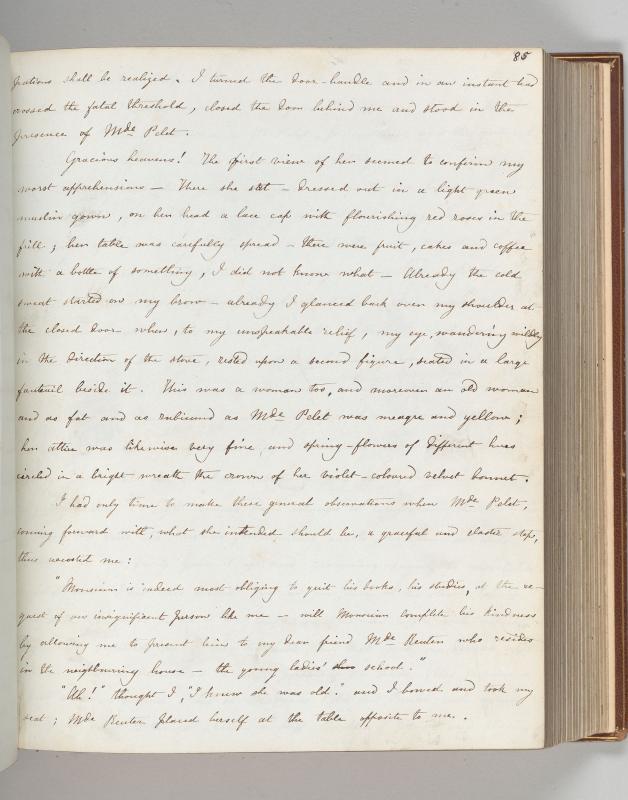 85
pections shall be realized. I turned the door-handle and in an instant had
crossed the fatal threshold, closed the door behind me and stood in the
presence of Mde Pelet.
Gracious heavens! The first view of her seemed to confirm my
worst apprehensions — There she sat — dressed out in a light green
muslin gown, on her head a lace cap with flourishing red roses in the
frill; her table was carefully spread — there were fruit, cakes and coffee
with a bottle of something, I did not know what — Already the cold
sweat started on my brow — already I glanced back over my shoulder at
the closed door when, to my unspeakable relief, my eye, wandering wildly
in the direction of the stove, rested upon a second figure, seated in a large
fauteuil beside it. This was a woman too, and moreover an old woman
and as fat and as rubicund as Mde Pelet was meagre and yellow;
her attire was likewise very fine, and spring-flowers of different hues
circled in a bright wreath the crown of her violet-coloured velvet bonnet.
I had only time to make these general observations when Mde Pelet,
coming forward with, what she intended should be, a graceful and elastic step,
thus accosted me:
"Monsieur is indeed most obliging to quit his books, his studies, at the re-
quest of an insignificant person like me — will Monsieur complete his kindness
by allowing me to present him to my dear friend Mde Reuter who resides
in the neighbouring house — the young ladies' school."
"Ah!" thought I, "I knew she was old." and I bowed and took my
seat; Mde Reuter placed herself at the table opposite to me.